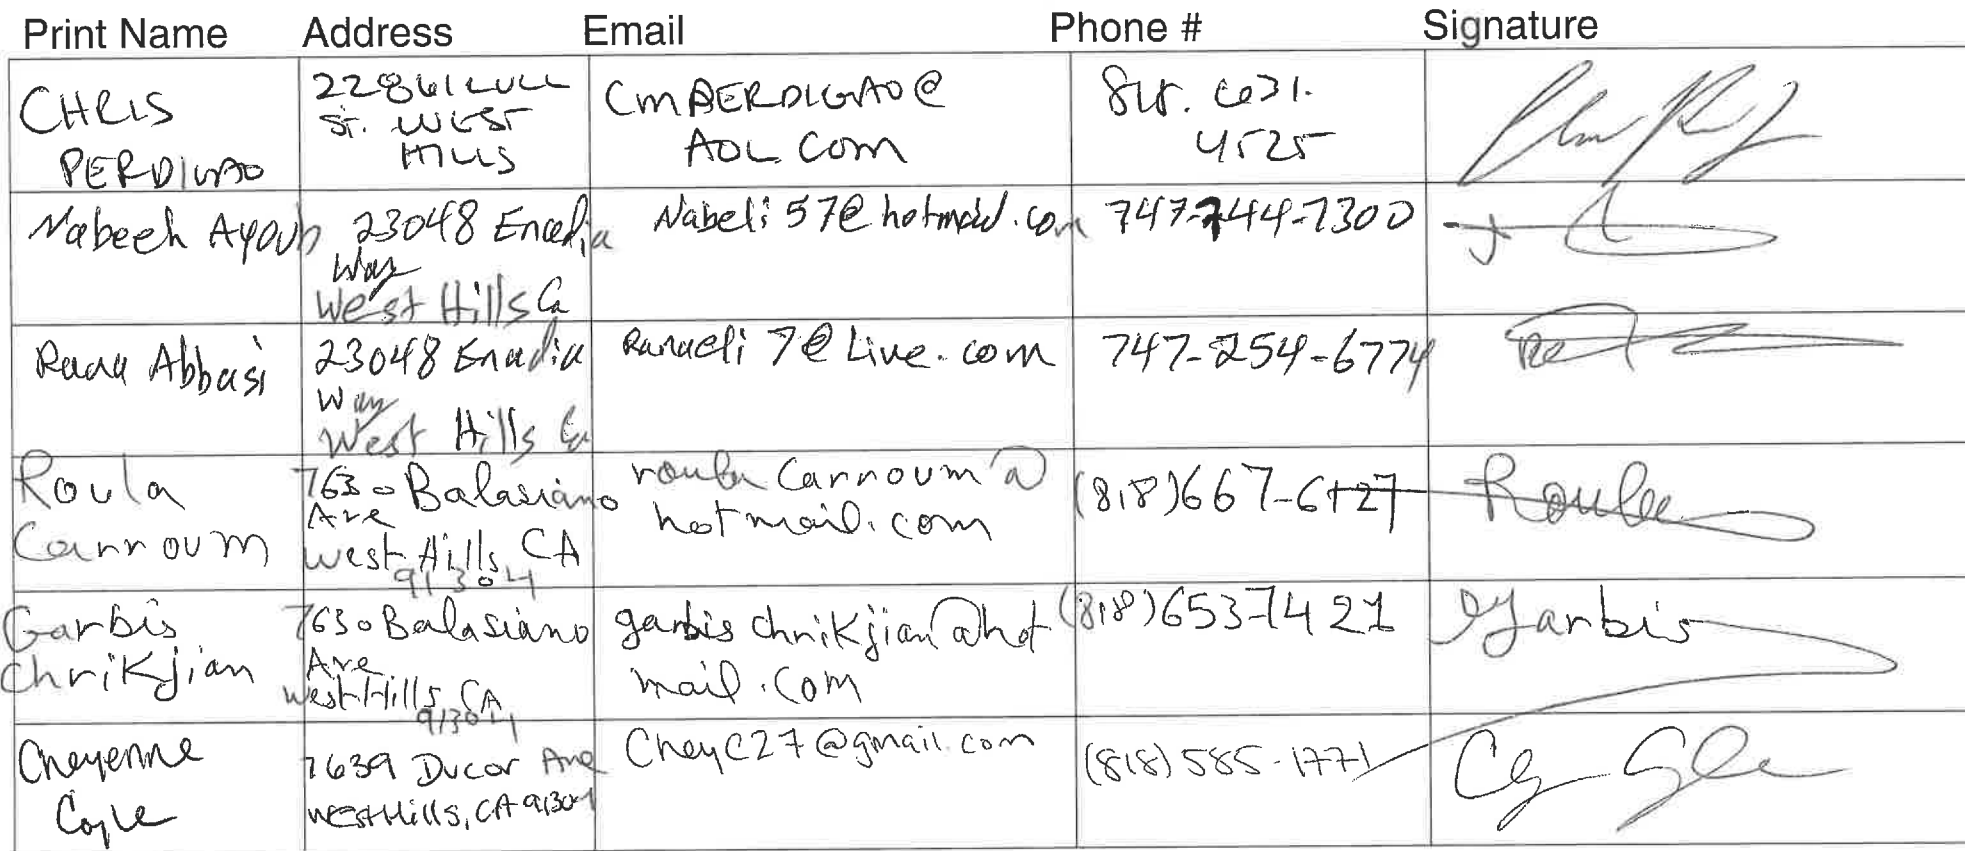 Print Name Address Email Phone # Signature
CHRIS
PERDIGAO
22861 LULL
ST. WEST
HILLS
CMPERDIGAO@
AOL COM
818. 631.
4525
Nabeeh Ayoub
23048 Enadia
Way
West Hills Ca
Nabeli57@hotmail.com
747-744-7300
Rana Abbasi
23048 Enadia
Way
West Hills Ca
Ranaeli7@Live.com
747-254-6774
Roula
Cannoum
7630 Balasiano
Ave
West Hills, CA
91304
roula Cannoum@
hotmail.com
(818)667-6127
Roula
Garbis
Chrikjian
7630 Balasiano
Ave
West Hills, CA
91304
garbis chrikjian@hot
mail.com
(818)653-7421
Garbis
Cheyenne
Coyle
7639 Ducor Ave
West Hills, CA 91304
CheyC27@gmail.com
(818) 585-1771